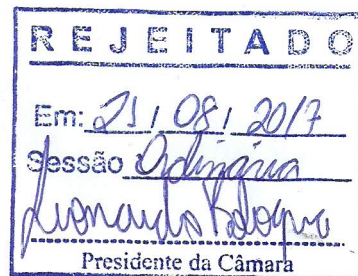 REJEITADO
Em: 21/08/2017
Sessão Ordinária
Leonardo
Presidente da Câmara